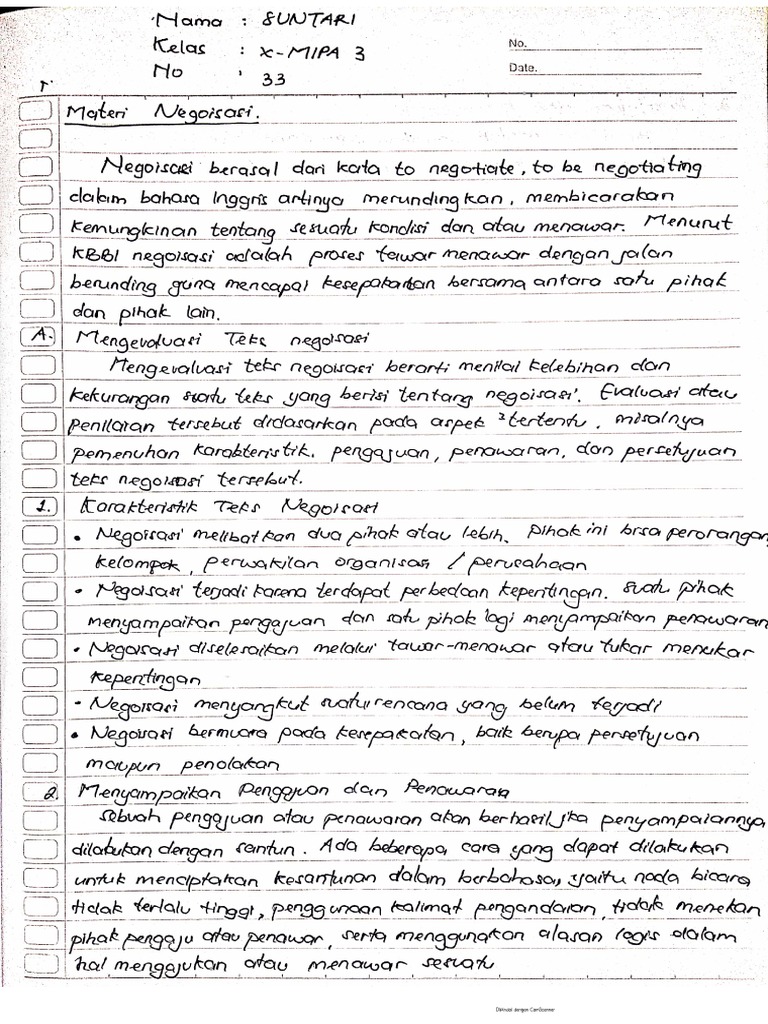 Nama : SUNTARI
Kelas : X-MIPA 3
No : 33
No.
Date.
Materi Negoisasi.
Negoisasi berasal dari kata to negotiate, to be negotiating
dalam bahasa Inggris artinya merundingkan, membicarakan
kemungkinan tentang sesuatu kondisi dan atau menawar. Menurut
KBBI negoisasi adalah proses tawar menawar dengan jalan
berunding guna mencapai kesepakatan bersama antara satu pihak
dan pihak lain.
A. Mengevaluasi Teks negoisasi
Mengevaluasi teks negoisasi berarti menilai kelebihan dan
kekurangan suatu teks yang berisi tentang negoisasi. Evaluasi atau
penilaian tersebut didasarkan pada aspek ² tertentu, misalnya
pemenuhan karakteristik. pengajuan, penawaran, dan persetujuan
teks negoisasi tersebut.
1. Karakteristik Teks Negoisasi
• Negoisasi melibatkan dua pihak atau lebih. Pihak ini bisa perorangan,
kelompok, perwakilan organisasi / perusahaan
• Negoisasi terjadi karena terdapat perbedaan kepentingan. suatu pihak
menyampaikan pengajuan dan satu pihak lagi menyampaikan penawaran
• Negoisasi diselesaikan melalui tawar-menawar atau tukar menukar
kepentingan
- Negoisasi menyangkut suatu rencana yang belum terjadi
• Negoisasi bermuara pada kesepakatan, baik berupa persetujuan
maupun penolakan
2. Menyampaikan Pengajuan dan Penawaran
Sebuah pengajuan atau penawaran akan berhasil jika penyampaiannya
dilakukan dengan santun. Ada beberapa cara yang dapat dilakukan
untuk menciptakan kesantunan dalam berbahasa, yaitu nada bicara
tidak terlalu tinggi, penggunaan kalimat pengandaian, tidak menekan
pihak pengaju atau penawar, serta menggunakan alasan logis dalam
hal mengajukan atau menawar sesuatu
Dipindai dengan CamScanner